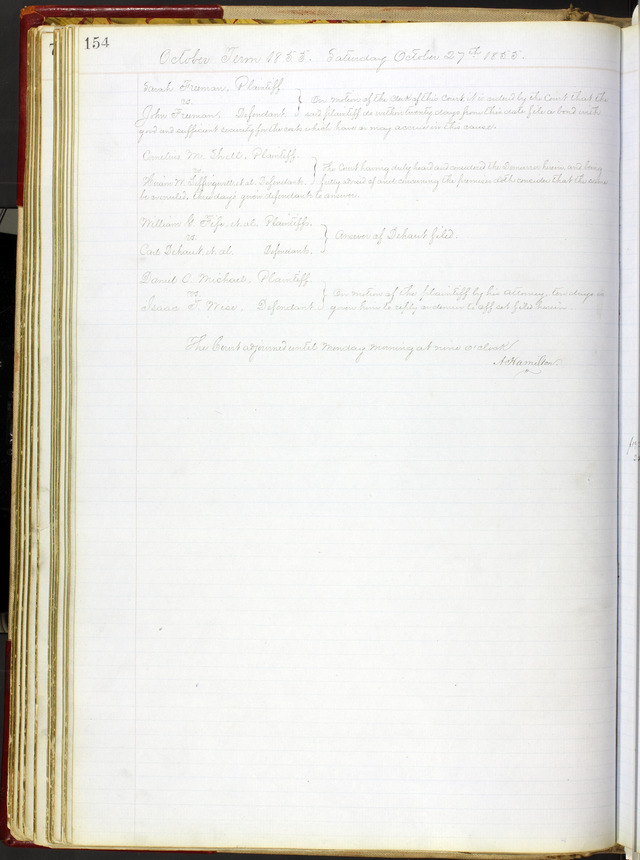 154
October Term 1855. Saturday October 27th 1855.
Sarah Freeman, Plaintiff.
vs.
John Freeman, Defendant.
On motion of the clerk of this Court it is ordered by the Court that the
said plaintiff do within twenty days from this date file a bond with
good and sufficient security for the costs which have or may accrue in this cause.
Caroline M. Plaintiff.
vs.
Hiram W. et al. Defendants.
The Court having duly heard and considered the Demurrer herein and being
fully advised of and concerning the premises doth consider that the same
be overruled, three days given defendants to answer.
William G. Fife, et al. Plaintiffs.
vs.
Carl Schaut et al. Defendant.
Answer of Schaut filed.
Daniel C. Michael, Plaintiff.
vs.
Isaac T. Wise, Defendant.
On motion of the plaintiff by his attorney, ten days is
given him to reply or demur to off set filed herein.
The Court adjourned until Monday morning at nine o'clock
A Hamilton